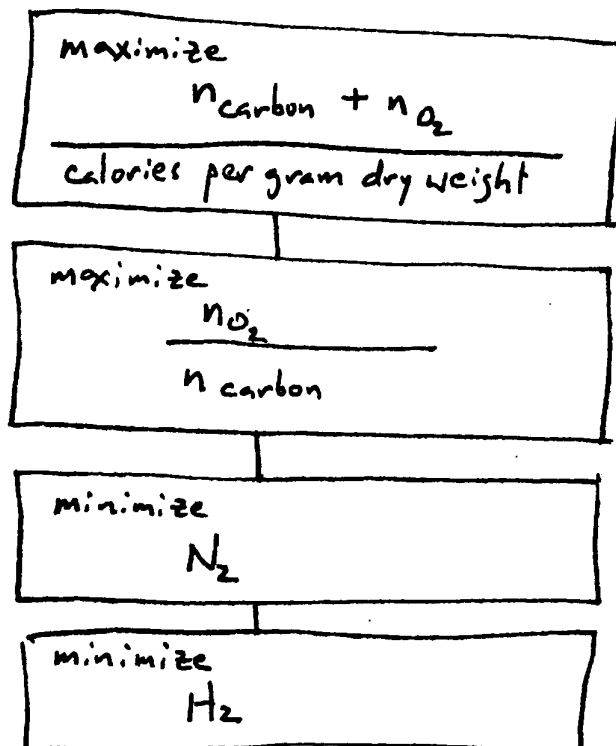 maximize
n carbon + n O₂
calories per gram dry weight
maximize
n O₂
n carbon
minimize
N₂
minimize
H₂